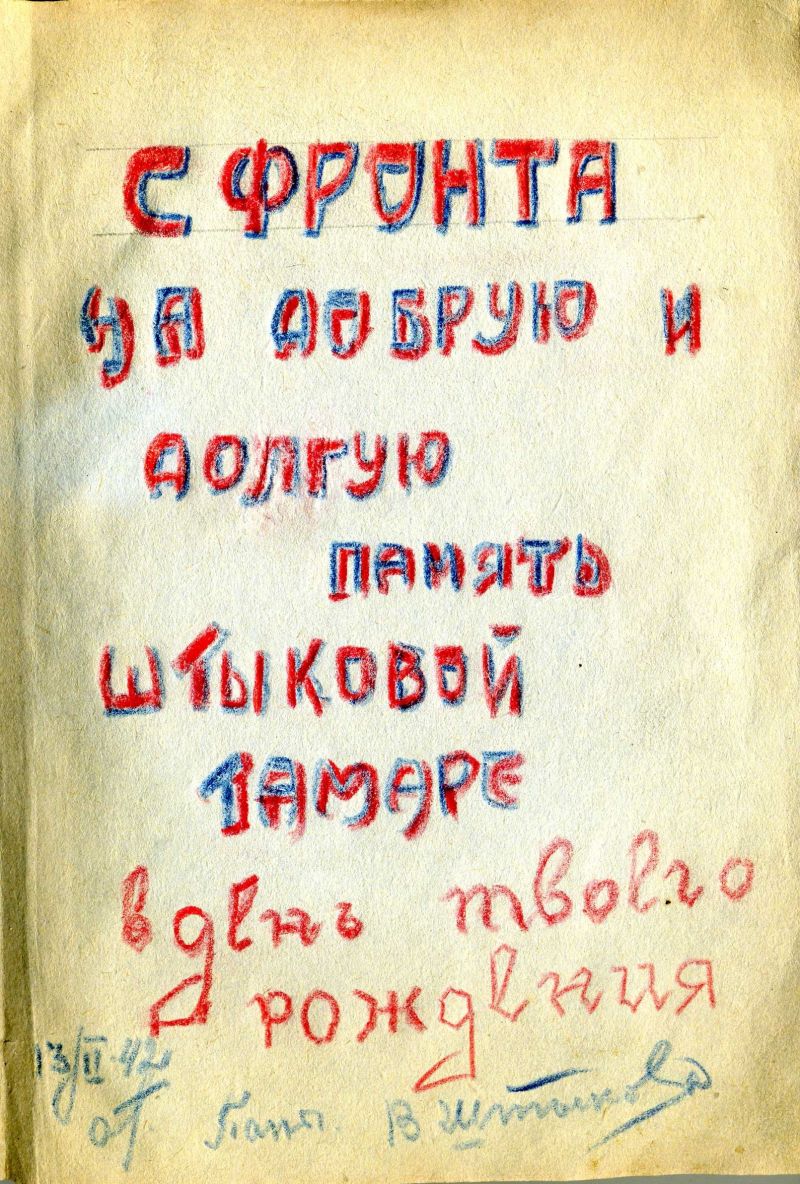 С ФРОНТА
НА ДОБРУЮ И
ДОЛГУЮ
ПАМЯТЬ
ШТЫКОВОЙ
ТАМАРЕ
в день твоего
рождения
13/II-42
от Папы. В Штыкова